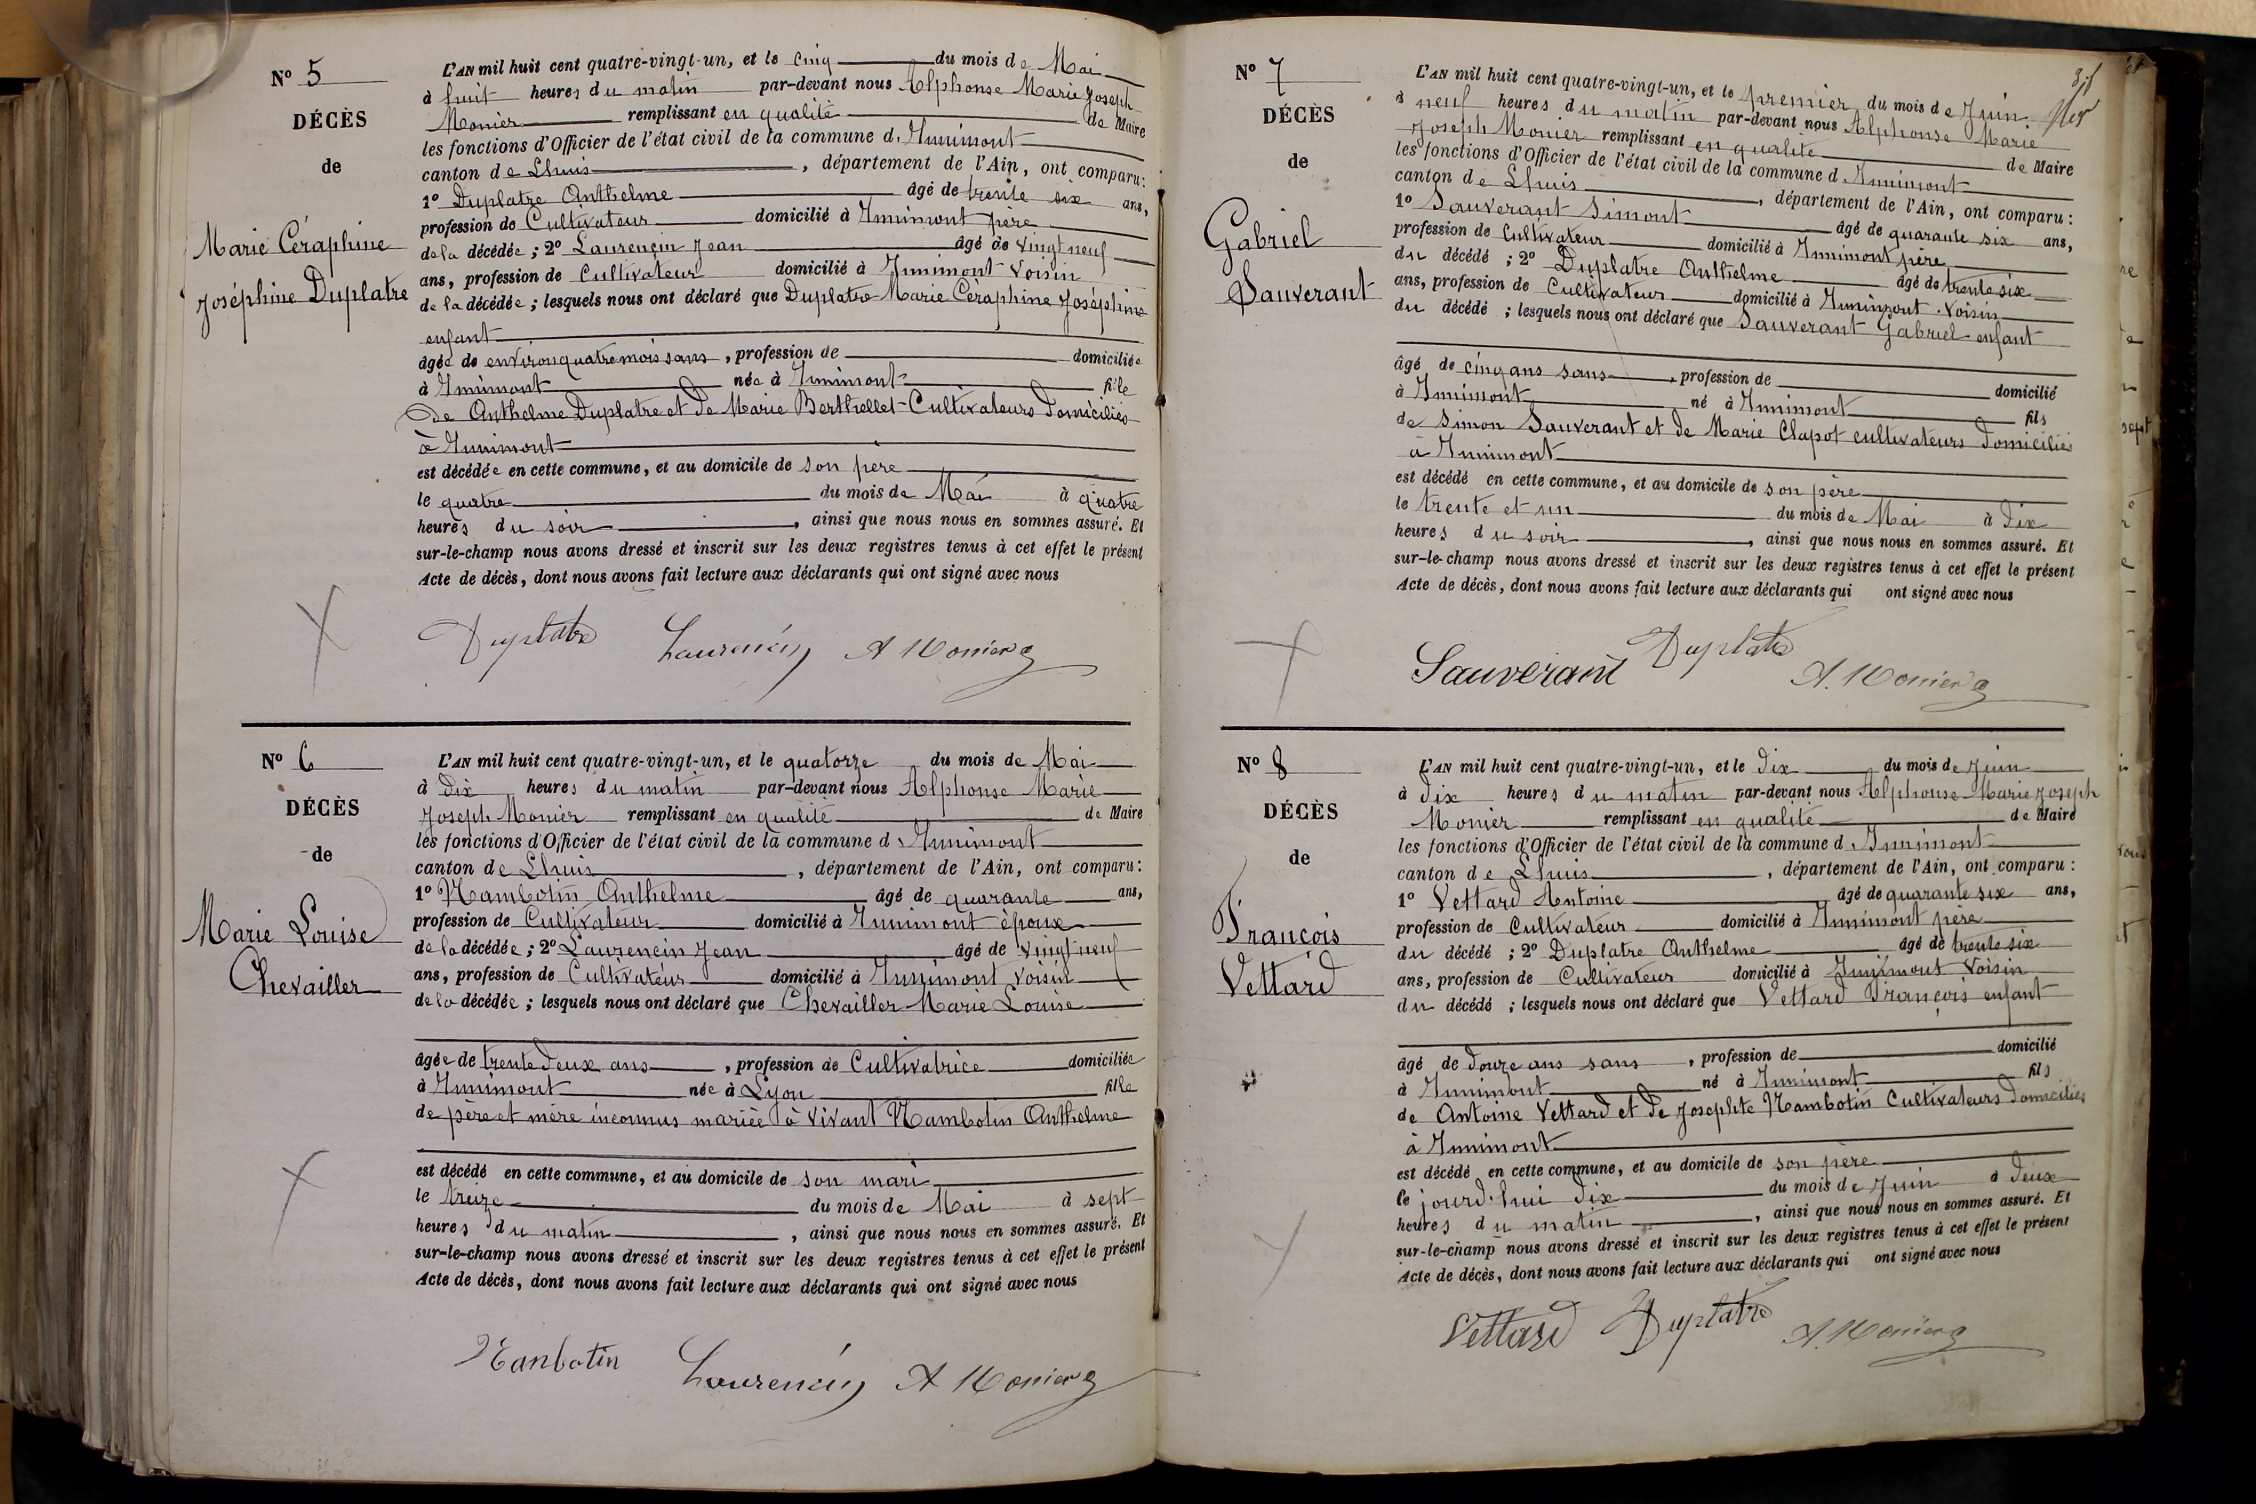 N° 5
DÉCÈS
de
Marie Céraphine
Joséphine Duplatre
L'AN mil huit cent quatre-vingt-un, et le cinq du mois de Mai
à huit heures du matin par-devant nous Alphonse Marie Joseph
Monier remplissant en qualité de Maire
les fonctions d'Officier de l'état civil de la commune d'Innimont
canton de Lhuis, département de l'Ain, ont comparu:
1° Duplatre Anthelme âgé de trente six ans,
profession de Cultivateur domicilié à Innimont père
de la décédée; 2° Laurencin Jean âgé de vingt neuf
ans, profession de Cultivateur domicilié à Innimont voisin
de la décédée; lesquels nous ont déclaré que Duplatre Marie Céraphine Joséphine
enfant
âgée de environ quatre mois sans, profession de domiciliée
à Innimont née à Innimont fille
de Anthelme Duplatre et de Marie Berthellet Cultivateurs domiciliés
à Innimont
est décédée en cette commune, et au domicile de son père
le quatre du mois de Mai à quatre
heures du soir, ainsi que nous nous en sommes assuré. Et
sur-le-champ nous avons dressé et inscrit sur les deux registres tenus à cet effet le présent
Acte de décès, dont nous avons fait lecture aux déclarants qui ont signé avec nous
Duplatre Laurencin A Monier
N° 6
DÉCÈS
de
Marie Louise
Chevailler
L'AN mil huit cent quatre-vingt-un, et le quatorze du mois de Mai
à dix heures du matin par-devant nous Alphonse Marie
Joseph Monier remplissant en qualité de Maire
les fonctions d'Officier de l'état civil de la commune d'Innimont
canton de Lhuis, département de l'Ain, ont comparu:
1° Nambotin Anthelme âgé de quarante ans,
profession de Cultivateur domicilié à Innimont époux
de la décédée; 2° Laurencin Jean âgé de vingt neuf
ans, profession de Cultivateur domicilié à Innimont voisin
de la décédée; lesquels nous ont déclaré que Chevailler Marie Louise
âgée de trente deux ans, profession de Cultivatrice domiciliée
à Innimont née à Lyon fille
de père et mère inconnus mariée à vivant Nambotin Anthelme
est décédé en cette commune, et au domicile de son mari
le treize du mois de Mai à sept
heures du matin, ainsi que nous nous en sommes assuré. Et
sur-le-champ nous avons dressé et inscrit sur les deux registres tenus à cet effet le présent
Acte de décès, dont nous avons fait lecture aux déclarants qui ont signé avec nous
Nanbotin Laurencin A Monier
N° 7
DÉCÈS
de
Gabriel
Sauverant
L'AN mil huit cent quatre-vingt-un, et le premier du mois de Juin
à neuf heures du matin par-devant nous Alphonse Marie
Joseph Monier remplissant en qualité de Maire
les fonctions d'Officier de l'état civil de la commune d'Innimont
canton de Lhuis, département de l'Ain, ont comparu:
1° Sauverant Simont âgé de quarante six ans,
profession de Cultivateur domicilié à Innimont père
du décédé; 2° Duplatre Anthelme âgé de trente six
ans, profession de Cultivateur domicilié à Innimont. Voisin
du décédé; lesquels nous ont déclaré que Sauverant Gabriel enfant
âgé de cinq ans sans, profession de domicilié
à Innimont né à Innimont fils
de Simon Sauverant et de Marie Clapot cultivateurs domiciliés
à Innimont
est décédé en cette commune, et au domicile de son père
le trente et un du mois de Mai à dix
heures du soir, ainsi que nous nous en sommes assuré. Et
sur-le-champ nous avons dressé et inscrit sur les deux registres tenus à cet effet le présent
Acte de décès, dont nous avons fait lecture aux déclarants qui ont signé avec nous
Sauverant Duplatre A. Monier
N° 8
DÉCÈS
de
François
Vettard
L'AN mil huit cent quatre-vingt-un, et le dix du mois de Juin
à dix heures du matin par-devant nous Alphonse Marie Joseph
Monier remplissant en qualité de Maire
les fonctions d'Officier de l'état civil de la commune d'Innimont
canton de Lhuis, département de l'Ain, ont comparu:
1° Vettard Antoine âgé de quarante six ans,
profession de Cultivateur domicilié à Innimont père
du décédé; 2° Duplatre Anthelme âgé de trente six
ans, profession de Cultivateur domicilié à Innimont voisin
du décédé; lesquels nous ont déclaré que Vettard François enfant
âgé de douze ans sans, profession de domicilié
à Innimont né à Innimont fils
de Antoine Vettard et de Josephte Nambotin Cultivateurs domiciliés
à Innimont
est décédé en cette commune, et au domicile de son père
le jourd'hui dix du mois de Juin à deux
heures du matin, ainsi que nous nous en sommes assuré. Et
sur-le-champ nous avons dressé et inscrit sur les deux registres tenus à cet effet le présent
Acte de décès, dont nous avons fait lecture aux déclarants qui ont signé avec nous
Vettard Duplatre A. Monier